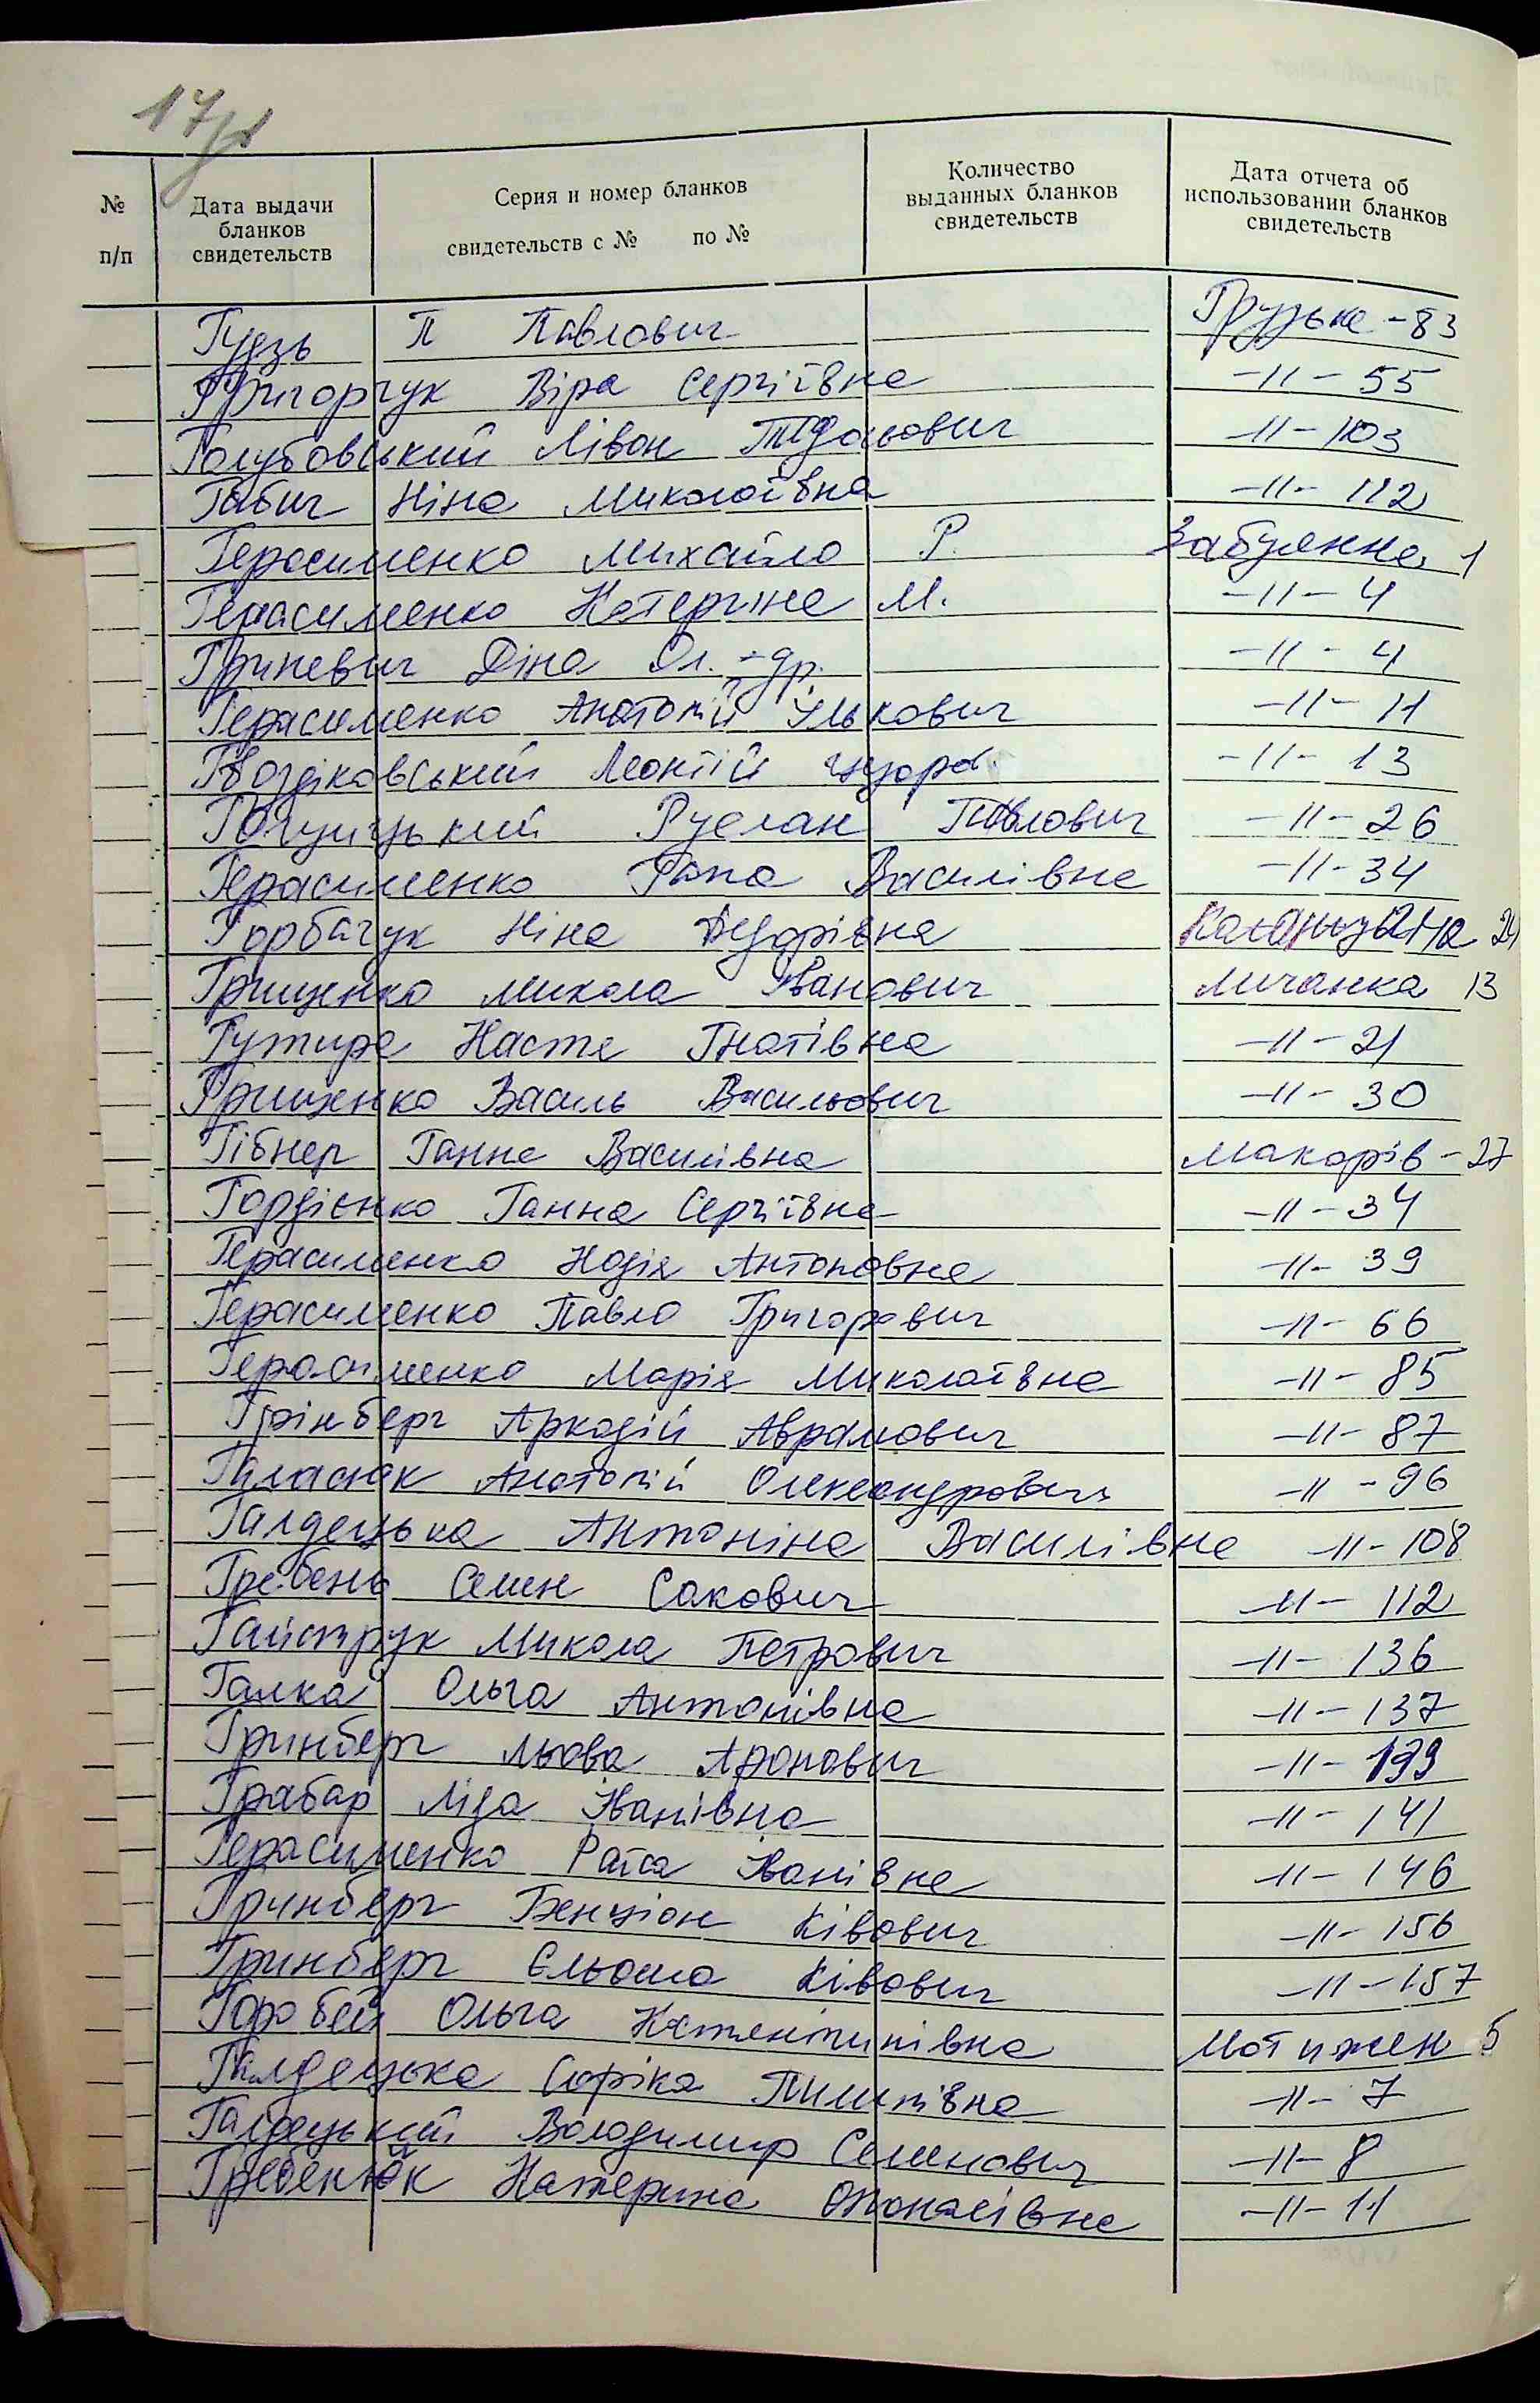 17
№ п/п
Дата выдачи бланков свидетельств
Серия и номер бланков свидетельств с № по №
Количество выданных бланков свидетельств
Дата отчета об использовании бланков свидетельств
Гудзь П Павлович Грузьке - 83
Григорчук Віра Сергіївна -11- 55
Голубовський Лівон -11- 103
Габич Ніна Миколаївна -11- 112
Герасименко Михайло Р. Забуянне 1
Герасименко Катерина М. -11- 4
Гриневич Діна Ол.-др. -11- 4
Герасименко Анатолій Ількович -11- 11
Гвоздіковський Леонтій -11- 13
Руслан Павлович -11- 26
Герасименко Василівна -11- 34
Горбачук Ніна Федорівна 24
Грищенко Микола Іванович Личанка 13
Гутира Настя Гнатівна -11- 21
Грищенко Василь Васильович -11- 30
Гібнер Ганна Василівна Макарів - 27
Гордієнко Ганна Сергіївна -11- 34
Герасименко Надія Антоновна -11- 39
Герасименко Павло Григорович -11- 66
Герасименко Марія Миколаївна -11- 85
Грінберг Аркадій Аврамович -11- 87
Анатолій Олександрович -11- 96
Галдецька Антоніна Василівна -11- 108
Гребень Семен Сакович -11- 112
Гайструк Микола Петрович -11- 136
Галка Ольга Антонівна -11- 137
Гринберг Льова Аронович -11- 139
Грабар Ліза Іванівна -11- 141
Герасименко Раїса Іванівна -11- 146
Гринберг Бенціон Ківович -11- 156
Гринберг Єльома Ківович -11- 157
Горобей Ольга Мотижен 5
Галдецька Софіка Пилипівна -11- 7
Галдецький Володимир Семенович -11- 8
Гребенюк Катерина Опонасівна -11- 11